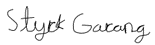 Styrk Garang